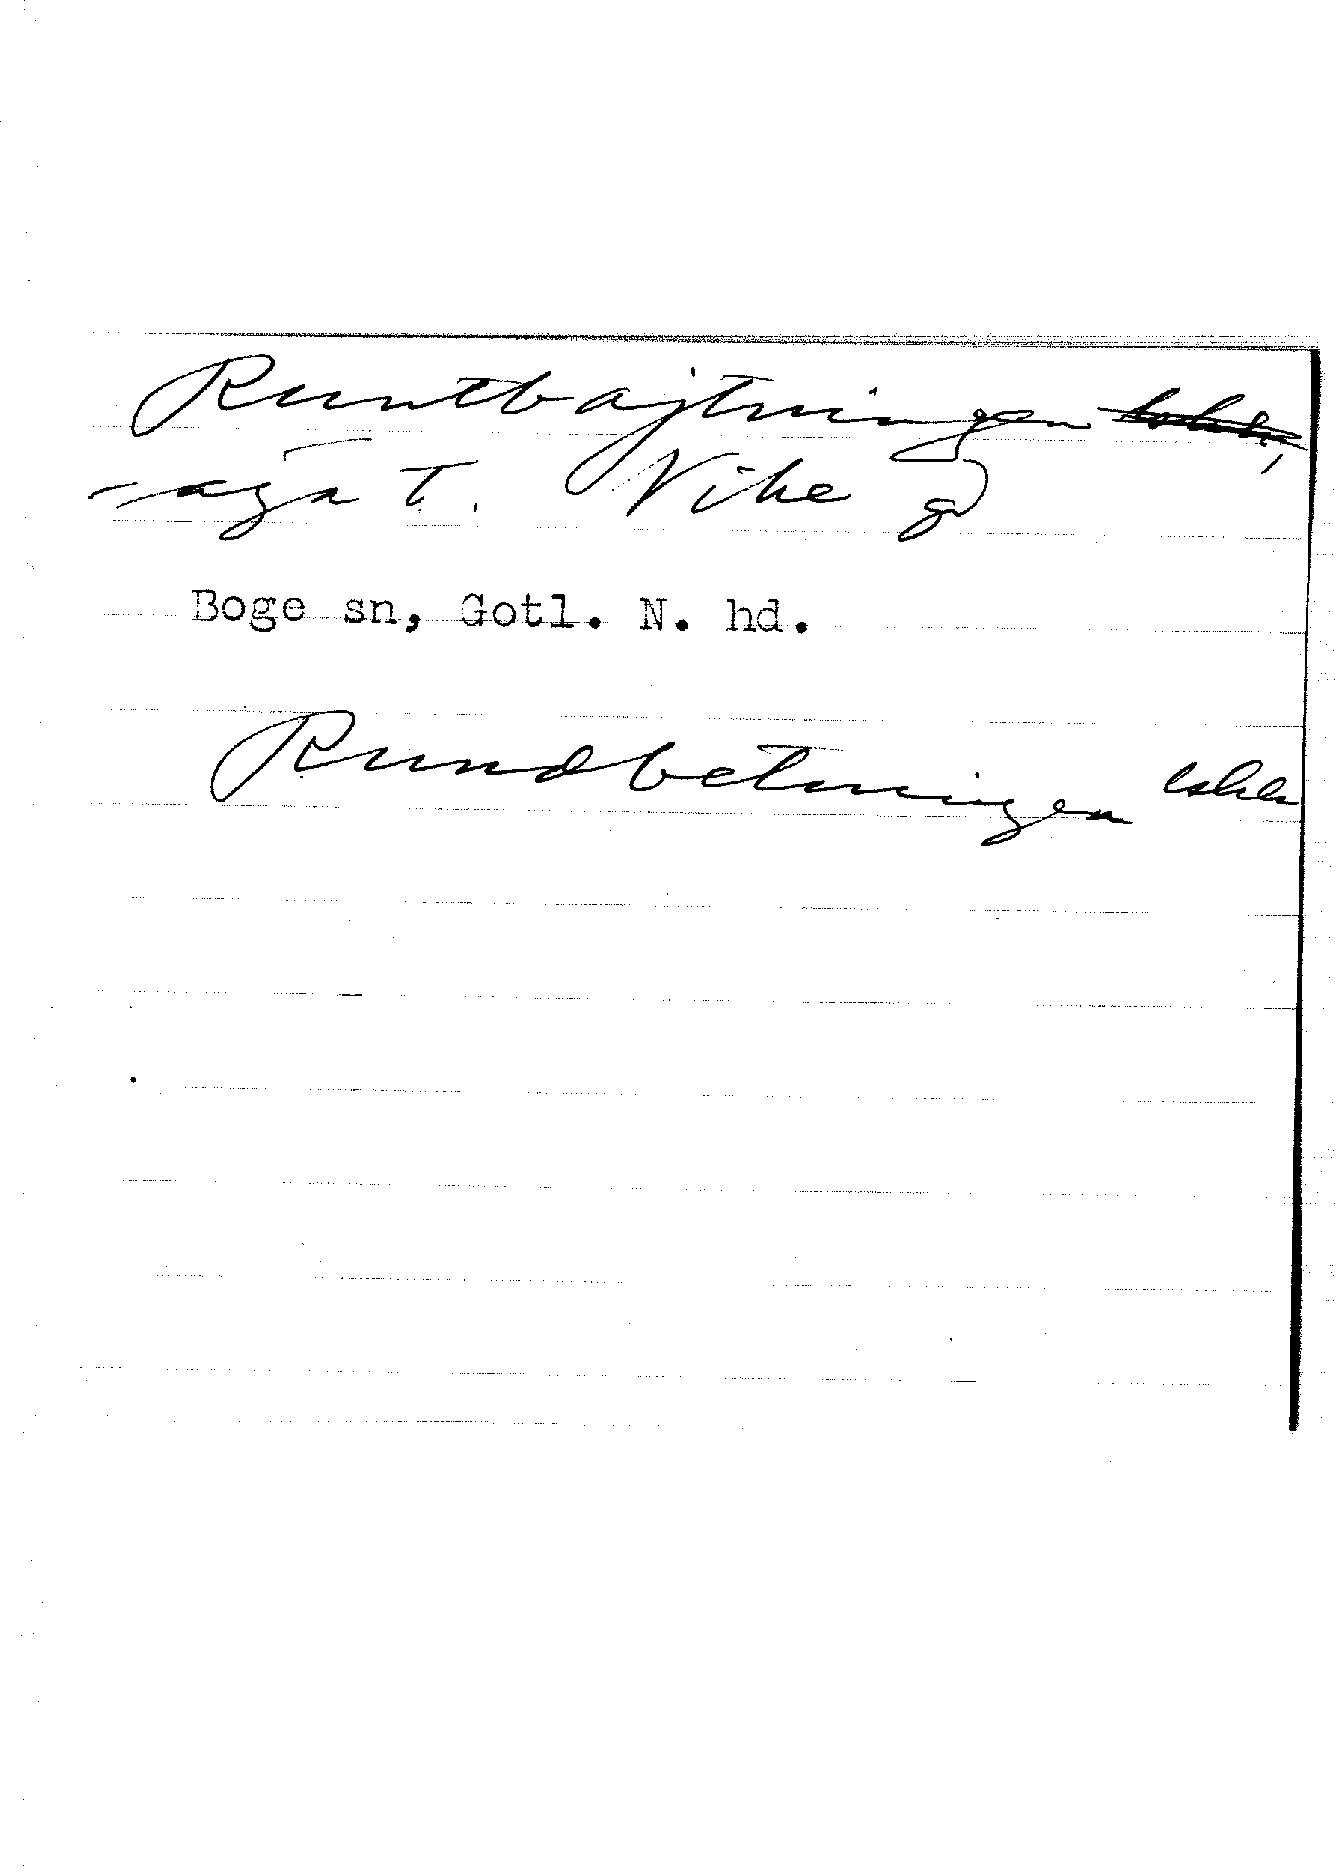 Runtbajtningen
T. Vike g
Boge sn, Gotl. N. hd.
Rundbetningen